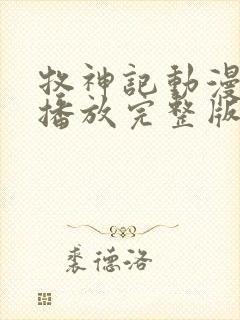 牧神記動漫
播放完整版
裘德洛